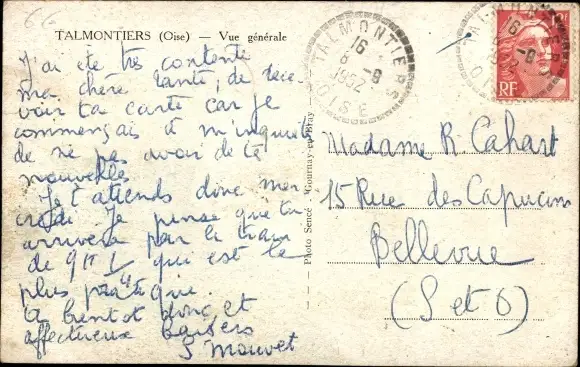 TALMONTIERS (Oise) — Vue générale
J'ai été très contente
ma chère tante, de rece-
voir ta carte car je
commençais à m'inquiéter
de ne pas avoir de tes
nouvelles
Je t'attends donc mer-
credi Je pense que tu
arrivera par le train
de 9h qui est le
plus pratique.
A bientôt donc et
affectueux baisers
S Mouvet
Photo Sencé - Gournay-en-Bray
TALMONTIERS
16
8 - 9
1952
OISE
TALMONTIERS
16
8 - 9
1952
OISE
RF
Madame R. Cahart
15 Rue des Capucins
Bellevue
(S et O)